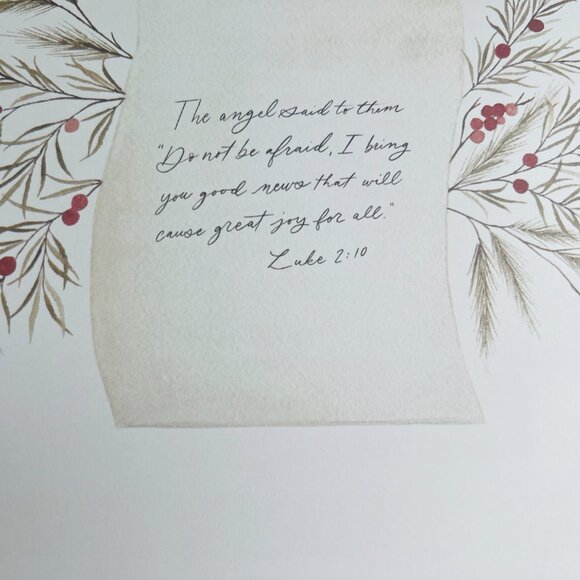 The angel said to them
"Do not be afraid, I bring
you good news that will
cause great joy for all."
Luke 2:10